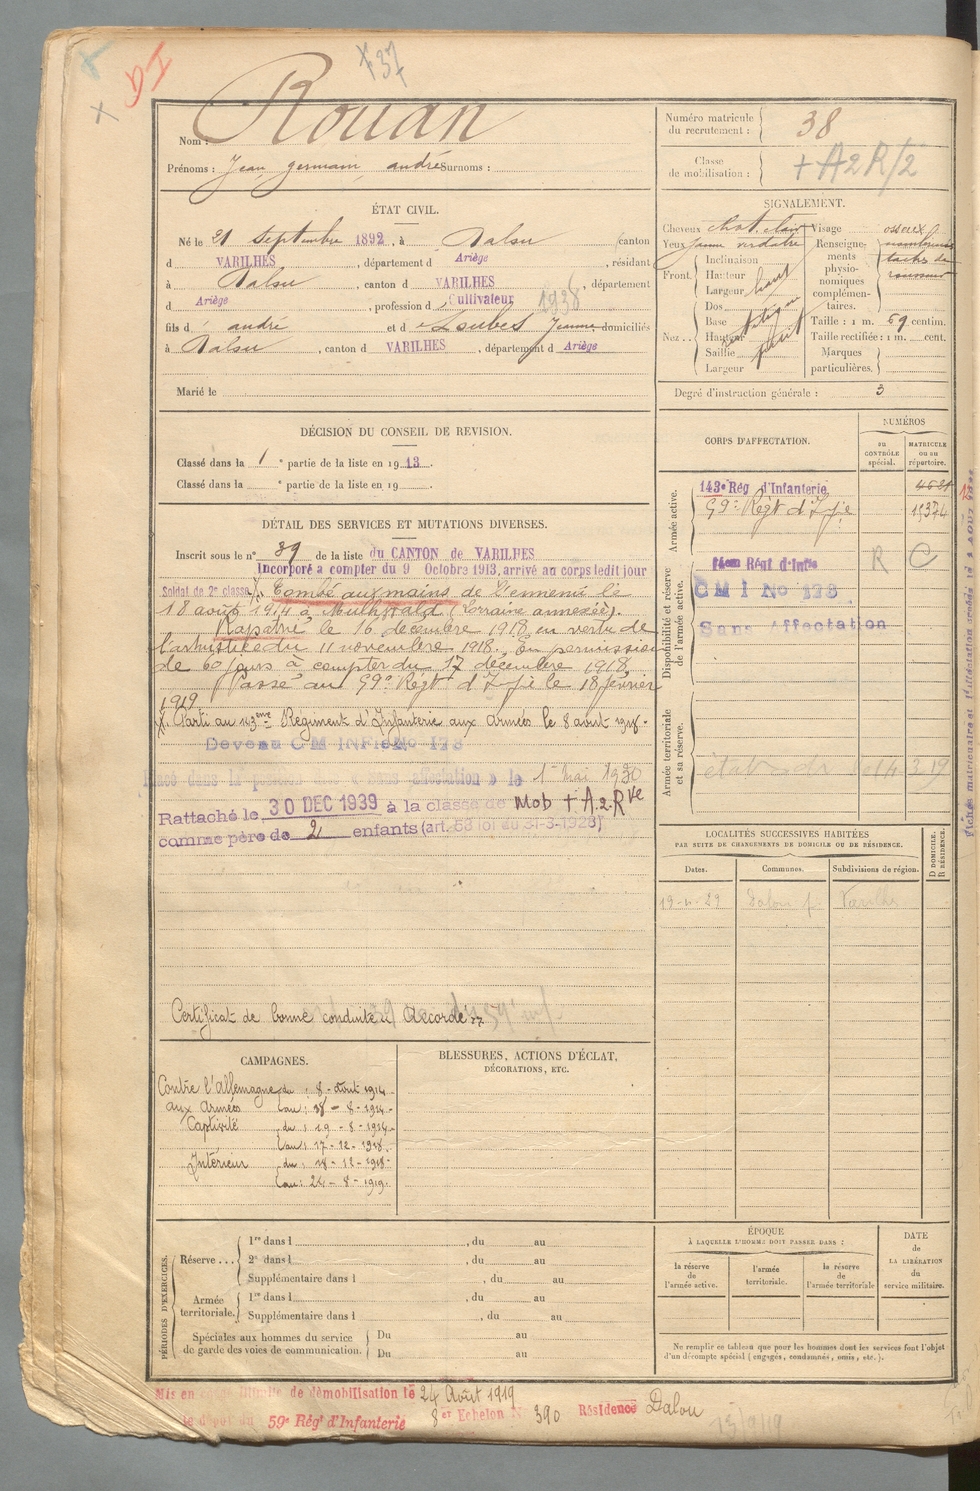 +37
Nom : Rouan
Prénoms : Jean, germain, andré Surnoms :
ÉTAT CIVIL.
Né le 21 septembre 1892, à Dalou canton
d VARILHES, département d Ariège, résidant
à Dalou, canton d VARILHES, département
d Ariège, profession d Cultivateur 1938
fils d andré et d Soubes Jeanne domiciliés
à Dalou, canton d VARILHES, département d Ariège
Marié le
DÉCISION DU CONSEIL DE REVISION.
Classé dans la 1e partie de la liste en 1913.
Classé dans la e partie de la liste en 19
DÉTAIL DES SERVICES ET MUTATIONS DIVERSES.
Inscrit sous le n° 39 de la liste du CANTON de VARILHES
Incorporé à compter du 9 Octobre 1913, arrivé au corps ledit jour
Soldat de 2e classe. Tombé aux mains de l'ennemi le
18 août 1914 à Muhlwald (Lorraine annexée).
Rapatrié le 16 décembre 1918 en vertu de
l'armistice du 11 novembre 1918. En permission
de 60 jours à compter du 17 décembre 1918
Passé au 59e Régt d'Inf ie le 18 février
1919
Parti au 143eme Régiment d'Infanterie aux armées le 8 août 1914.
Devenu C M INFie No 178
Placé dans la position dite « Sans affectation » le 1er Mai 1930
Rattaché le 30 DEC 1939 à la classe de Mob + A.2.Rve
comme père de 2 enfants (art. 58 loi du 31-3-1928)
Certificat de bonne conduite "Accordé"
CAMPAGNES.
Contre l'Allemagne du : 8 - août 1914 -
aux armées au : 18 - 8 - 1914 -
Captivité du : 19 - 8 - 1914 -
au : 17 - 12 - 1918 -
Intérieur du : 18 - 12 - 1918 -
au : 24 - 8 - 1919.
BLESSURES, ACTIONS D'ÉCLAT,
DÉCORATIONS, ETC.
PÉRIODES D'EXERCICES.
Réserve ...
1re dans l , du au
2e dans l , du au
Supplémentaire dans l , du au
Armée territoriale.
1re dans l , du au
Supplémentaire dans l , du au
Spéciales aux hommes du service
de garde des voies de communication.
Du au
Du au
Mis en congé illimité de démobilisation le 24 Août 1919
le dépôt du 59e Régt d'Infanterie 8e Echelon N° 390 Résidence Dalou
Numéro matricule
du recrutement : 38
Classe
de mobilisation : + A2R/2
SIGNALEMENT.
Cheveux chat. clair
Yeux jaune verdatre
Front.
Inclinaison
Hauteur haut
Largeur
Nez ..
Dos
Base
Hauteur
Saillie petit
Largeur
Visage osseux
Renseignements
physio-
nomiques
complémen-
taires.
nombreuses
taches de
rousseur
Taille : 1 m. 69 centim.
Taille rectifiée : 1 m. cent.
Marques
particulières.
Degré d'instruction générale : 3
CORPS D'AFFECTATION.
NUMÉROS
au
CONTRÔLE
spécial.
MATRICULE
ou au
répertoire.
Armée active.
143e Rég d'Infanterie 4621
59e Régt d'Inf ie 15374
Disponibilité et réserve
de l'armée active.
Régt d'Infie R C
C M I No 178
Sans Affectation
Armée territoriale
et sa réserve.
LOCALITÉS SUCCESSIVES HABITÉES
PAR SUITE DE CHANGEMENTS DE DOMICILE OU DE RÉSIDENCE.
Dates.
Communes.
Subdivisions de région.
D DOMICILE.
R RÉSIDENCE.
Dalou
Varilhes
ÉPOQUE
À LAQUELLE L'HOMME DOIT PASSER DANS :
la réserve
de
l'armée active.
l'armée
territoriale.
la réserve
de
l'armée territoriale
DATE
de
LA LIBÉRATION
du
service militaire.
Ne remplir ce tableau que pour les hommes dont les services font l'objet
d'un décompte spécial (engagés, condamnés, omis, etc.).